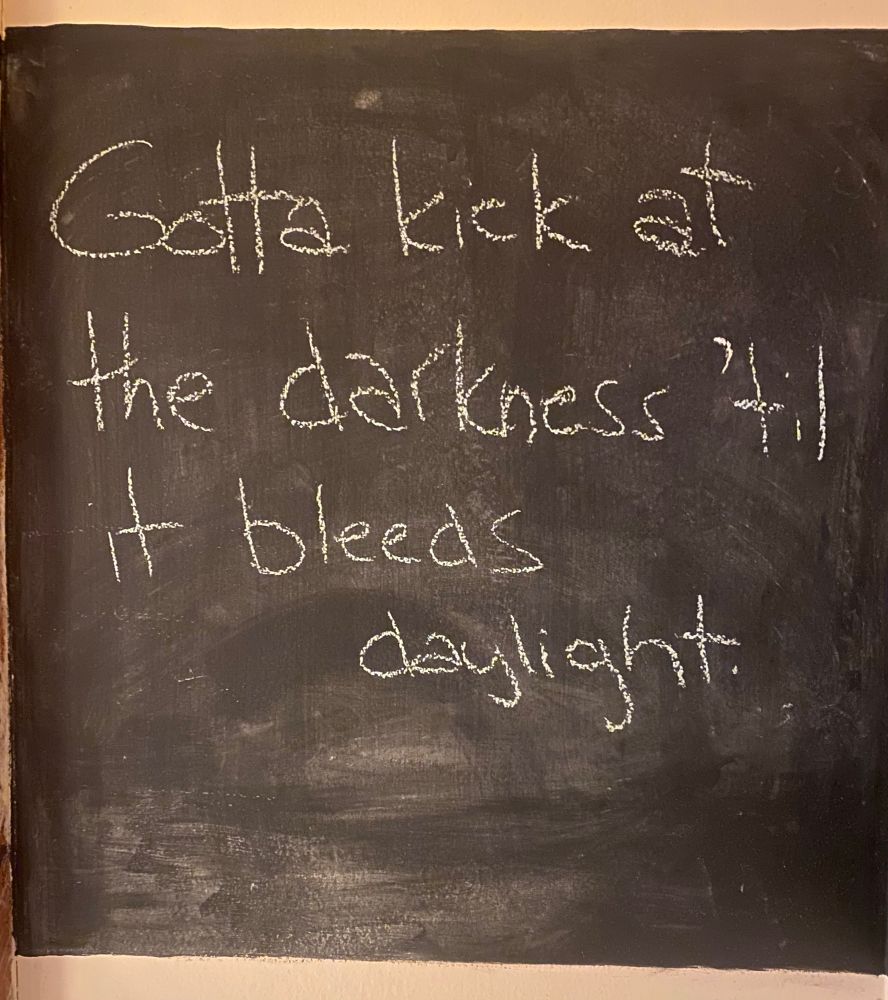 Gotta kick at
the darkness 'til
it bleeds
daylight.